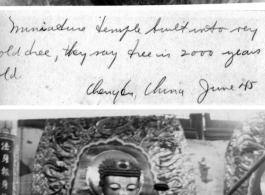 Miniature temple built into very
old tree, they say tree is 2000 years
old.
Chengtu, China June 45